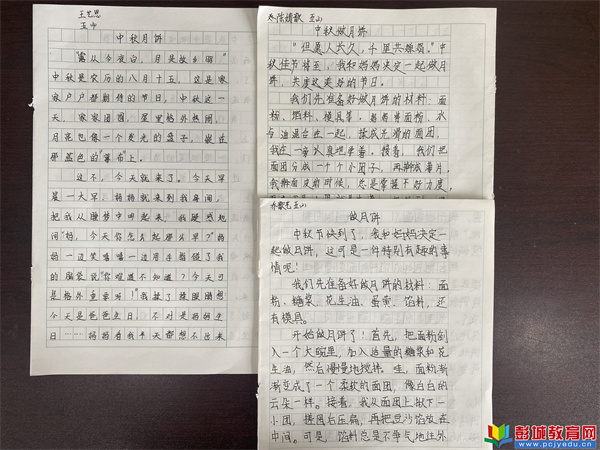 王艺思
五中
中秋月饼
"露从今夜白，月是故乡明"
中秋是农历的八月十五，这是家
家户户都期待的节日。中秋这一
天，家家团圆，屋里格外热闹，
月亮也像一个发光的盘子，嵌在
墨蓝色的"幕布"上。
这不，今天就来了。今天早
晨一大早，妈妈就来到我房间，
把我从睡梦中叫起来。我疑惑起
问"妈，今天你怎么起那么早？"妈
妈一边笑嘻嘻一边用手指顿了我
的脑袋说"你呢道不知道？今天可
是格外重要呀！"我揉了揉眼睛想
今天是爸爸生日，不对是妈妈生
日……妈妈看我半天都想不出来
陈婧歆 五山
中秋做月饼
"但愿人长久，千里共婵娟。"中
秋佳节将至，我和妈妈决定一起做月
饼，共度这美好的节日。
我们先准备好做月饼的材料：面
粉、馅料、模具等，看着将面粉、水
与油混合在一起，揉成光滑的面团，
我在一旁认真地学着。接着，我们把
面团分成一个个小团子，再擀成薄片。
我擀面皮的时候，总是掌握不好力度，
乔歆艺 五山
做月饼
中秋节快到了，我和妈妈决定一
起做月饼，这可是一件特别有趣的事
情呢！
我们先准备好做月饼的材料：面
粉、糖浆、花生油、蛋黄、馅料，还
有模具。
开始做月饼了！首先，把面粉倒
入一个大碗里，加入适量的糖浆和花
生油，然后慢慢地搅拌。哇，面粉渐
渐变成了一个柔软的面团，像白白的
云朵一样。接着，我从面团上揪下一
小团，搓圆后压扁，再把豆沙馅放在
中间。可是，馅料总是不争气地往外
彭城教育网
www.pcjyedu.cn